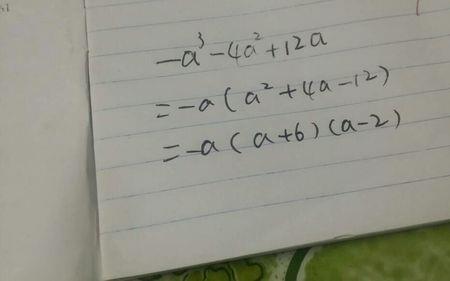 -a³-4a²+12a
=-a(a²+4a-12)
=-a(a+6)(a-2)